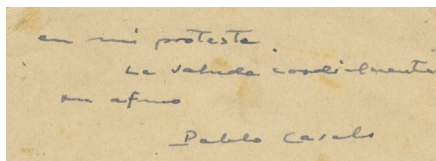 en mi protesta.
Le saluda cordialmente
su afmo
Pablo Casals